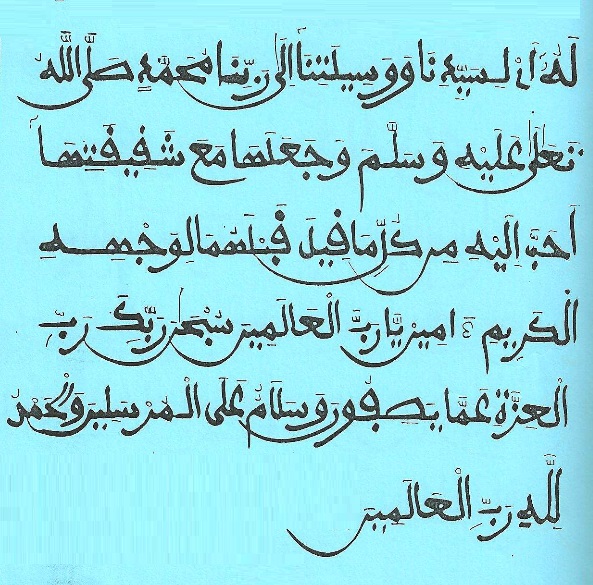 لسيّدنا ووسيلتنا إلى ربّنا محمّد صلّى الله
تعلى عليه وسلّم وجعلها مع شفيقتها
أحبّ إليه من كلّ ما قيل قبلهما لوجهه
الكريم ءامين يا ربّ العالمين سبحن ربّك ربّ
العزّة عمّا يصفون وسلام على المرسلين والحمد
للّه ربّ العالمين